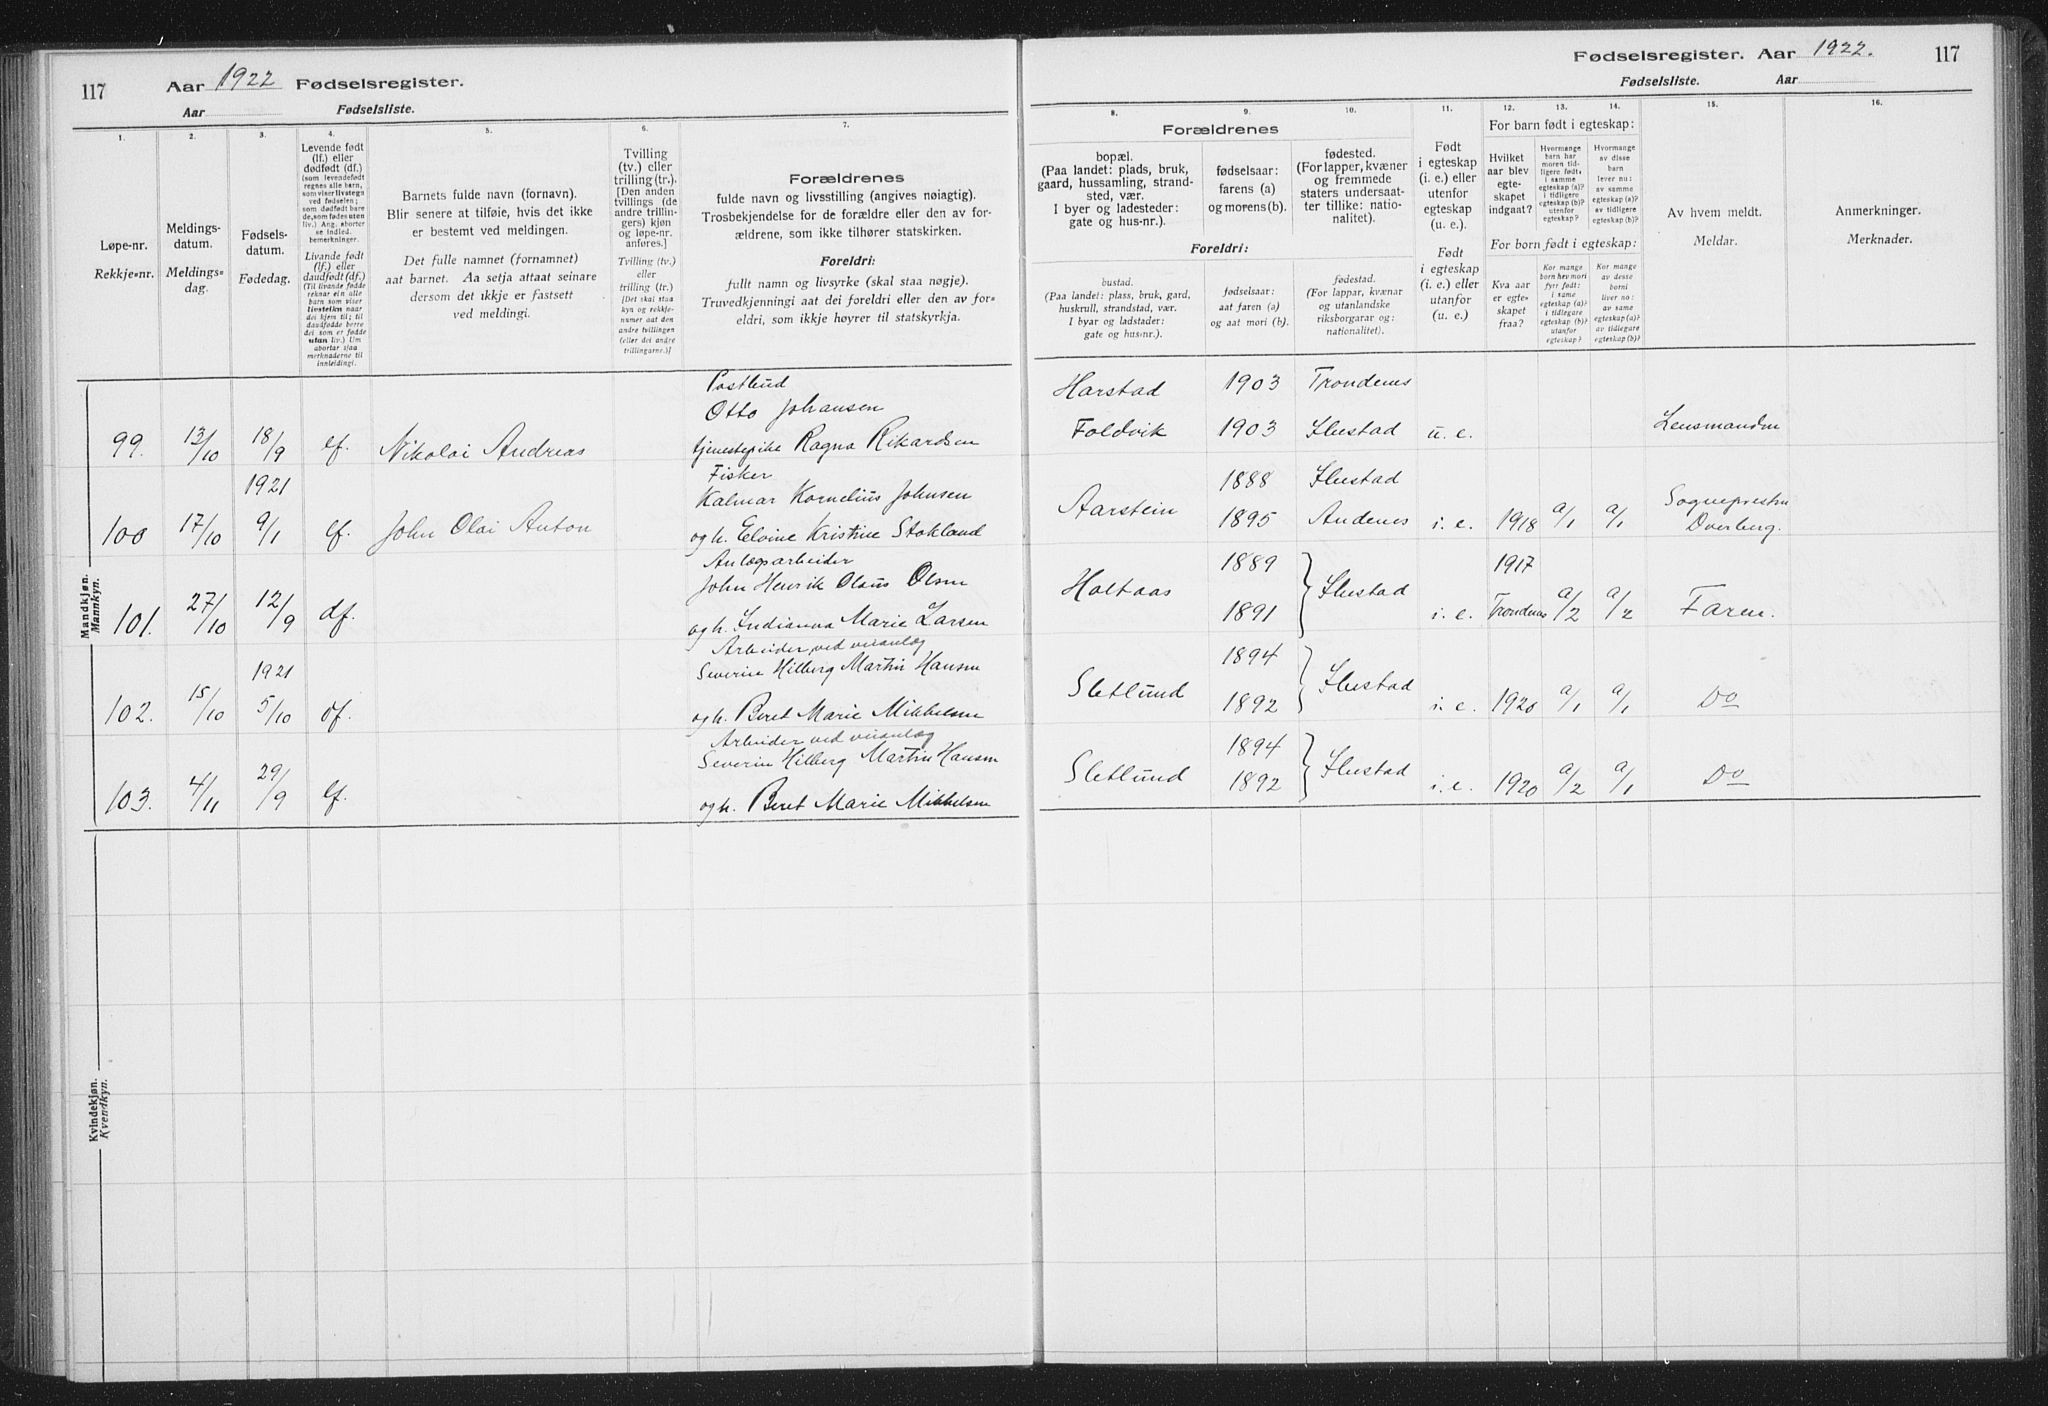 117 Aar 1922 Fødselsregister.
Aar Fødselsliste.
Fødselsregister. Aar 1922. 117
Fødselsliste. Aar
1. 2. 3. 4. 5. 6. 7.
Løpe-nr.
Rekkje=nr.
Meldings-
datum.
Meldings=
dag.
Fødsels-
datum.
Fødedag.
Levende født
(lf.) eller
dødfødt (df.)
(som levendefødt
regnes alle barn,
som viser livstegn
ved fødselen;
som dødfødt bare
de, som fødes uten
liv.) Ang. aborter
se indled.
bemerkninger.
Livande født
(lf.) eller
daudfødt (df.)
(Til livande fødde
reknar ein alle
born som viser
livsteikn naar
dei kjem til; til
daudfødde berre
dei som er fødde
utan liv.) Um
abortar sjaa
merknaderne til
innleidingi.
Barnets fulde navn (fornavn).
Blir senere at tilføie, hvis det ikke
er bestemt ved meldingen.
Det fulle namnet (fornamnet)
aat barnet. Aa setja attaat seinare
dersom det ikkje er fastsett
ved meldingi.
Tvilling
(tv.) eller
trilling (tr.).
[Den anden
tvillings (de
andre trillin-
gers) kjøn
og løpe-nr.
anføres.]
Tvilling (tv.)
eller
trilling (tr.)
[Det skal staa
kyn og rekkje-
numer aat den
andre tvillingen
(eller dei andre
trillingarne.)]
Forældrenes
fulde navn og livsstilling (angives nøiagtig).
Trosbekjendelse for de forældre eller den av for-
ældrene, som ikke tilhører statskirken.
Foreldri:
fullt namn og livsyrke (skal staa nøgje).
Truvedkjenningi aat dei foreldri eller den av for=
eldri, som ikkje høyrer til statskyrkja.
8. 9. 10. 11. 12. 13. 14. 15. 16.
Forældrenes
bopæl.
(Paa landet: plads, bruk,
gaard, hussamling, strand-
sted, vær.
I byer og ladesteder:
gate og hus-nr.).
fødselsaar:
farens (a)
og morens (b).
fødested.
(For lapper, kvæner
og fremmede
staters undersaat-
ter tillike: natio-
nalitet).
Foreldri:
bustad.
(Paa landet: plass, bruk, gard,
huskrull, strandstad, vær.
I byar og ladstader:
gate og hus=nr.).
fødselsaar:
aat faren (a)
og aat mori (b).
fødestad.
(For lappar, kvænar
og utanlandske
riksborgarar og:
nationalitet).
Født
i egteskap
(i. e.) eller
utenfor
egteskap
(u. e.).
Født
i egteskap
(i. e.) eller
utanfor
(u. e.)
For barn født i egteskap:
Hvilket
aar blev
egte-
skapet
indgaat?
Hvormange
barn har
moren tid-
ligere født,
i samme
egteskap (a)?
i tidligere
egteskap (b)?
utenfor
egteskap?
Hvormange
av disse
barn
lever nu:
av samme
egteskap (a)?
av tidligere
egteskap (b)?
For born født i egteskap:
Kva aar
er egte=
skapet
fraa?
Kor mange
born hev mori
fyrr født:
i same
egteskap (a)?
i tidlegare
egteskap (b)?
utanfor
egteskap?
Kor mange
av desse
borni
liver no:
av same
egteskap (a)?
av tidlegare
egteskap (b)?
Av hvem meldt.
Meldar.
Anmerkninger.
Merknader.
Mandkjøn.
Mannkyn.
Postbud
Otto Johansen Harstad 1903 Trondenes
99. 13/10 18/9 lf. Nikolai Andreas tjenestepike Ragna Rikardsen Foldvik 1903 Ibestad u. e. Lensmanden
1921 Fisker
Kalmar Kornelius Johnsen Aarstein 1888 Ibestad
100 17/10 9/1 lf. John Olai Anton og h. Elvine Kristine Stokland 1895 Andenes i. e. 1918 a/1 a/1 Sognepresten
Dverberg.
Anlegsarbeider
John Henrik Olaus Olsen Holtaas 1889 Ibestad 1917
101. 27/10 12/9 df. og h. Indianna Marie Larsen 1891 i. e. Trondenes a/2 a/2 Faren.
Arbeider ved veianlæg
1921 Severin Hilberg Martin Hansen Sletlund 1894 Ibestad
102. 15/10 5/10 df. og h. Beret Marie Mikkelsen 1892 i. e. 1920 a/1 a/1 Do
Arbeider ved veianlæg
Severin Hilberg Martin Hansen Sletlund 1894 Ibestad
103. 4/11 29/9 lf. og h. Beret Marie Mikkelsen 1892 i. e. 1920 a/2 a/1 Do
Kvindekjøn.
Kvendkyn.